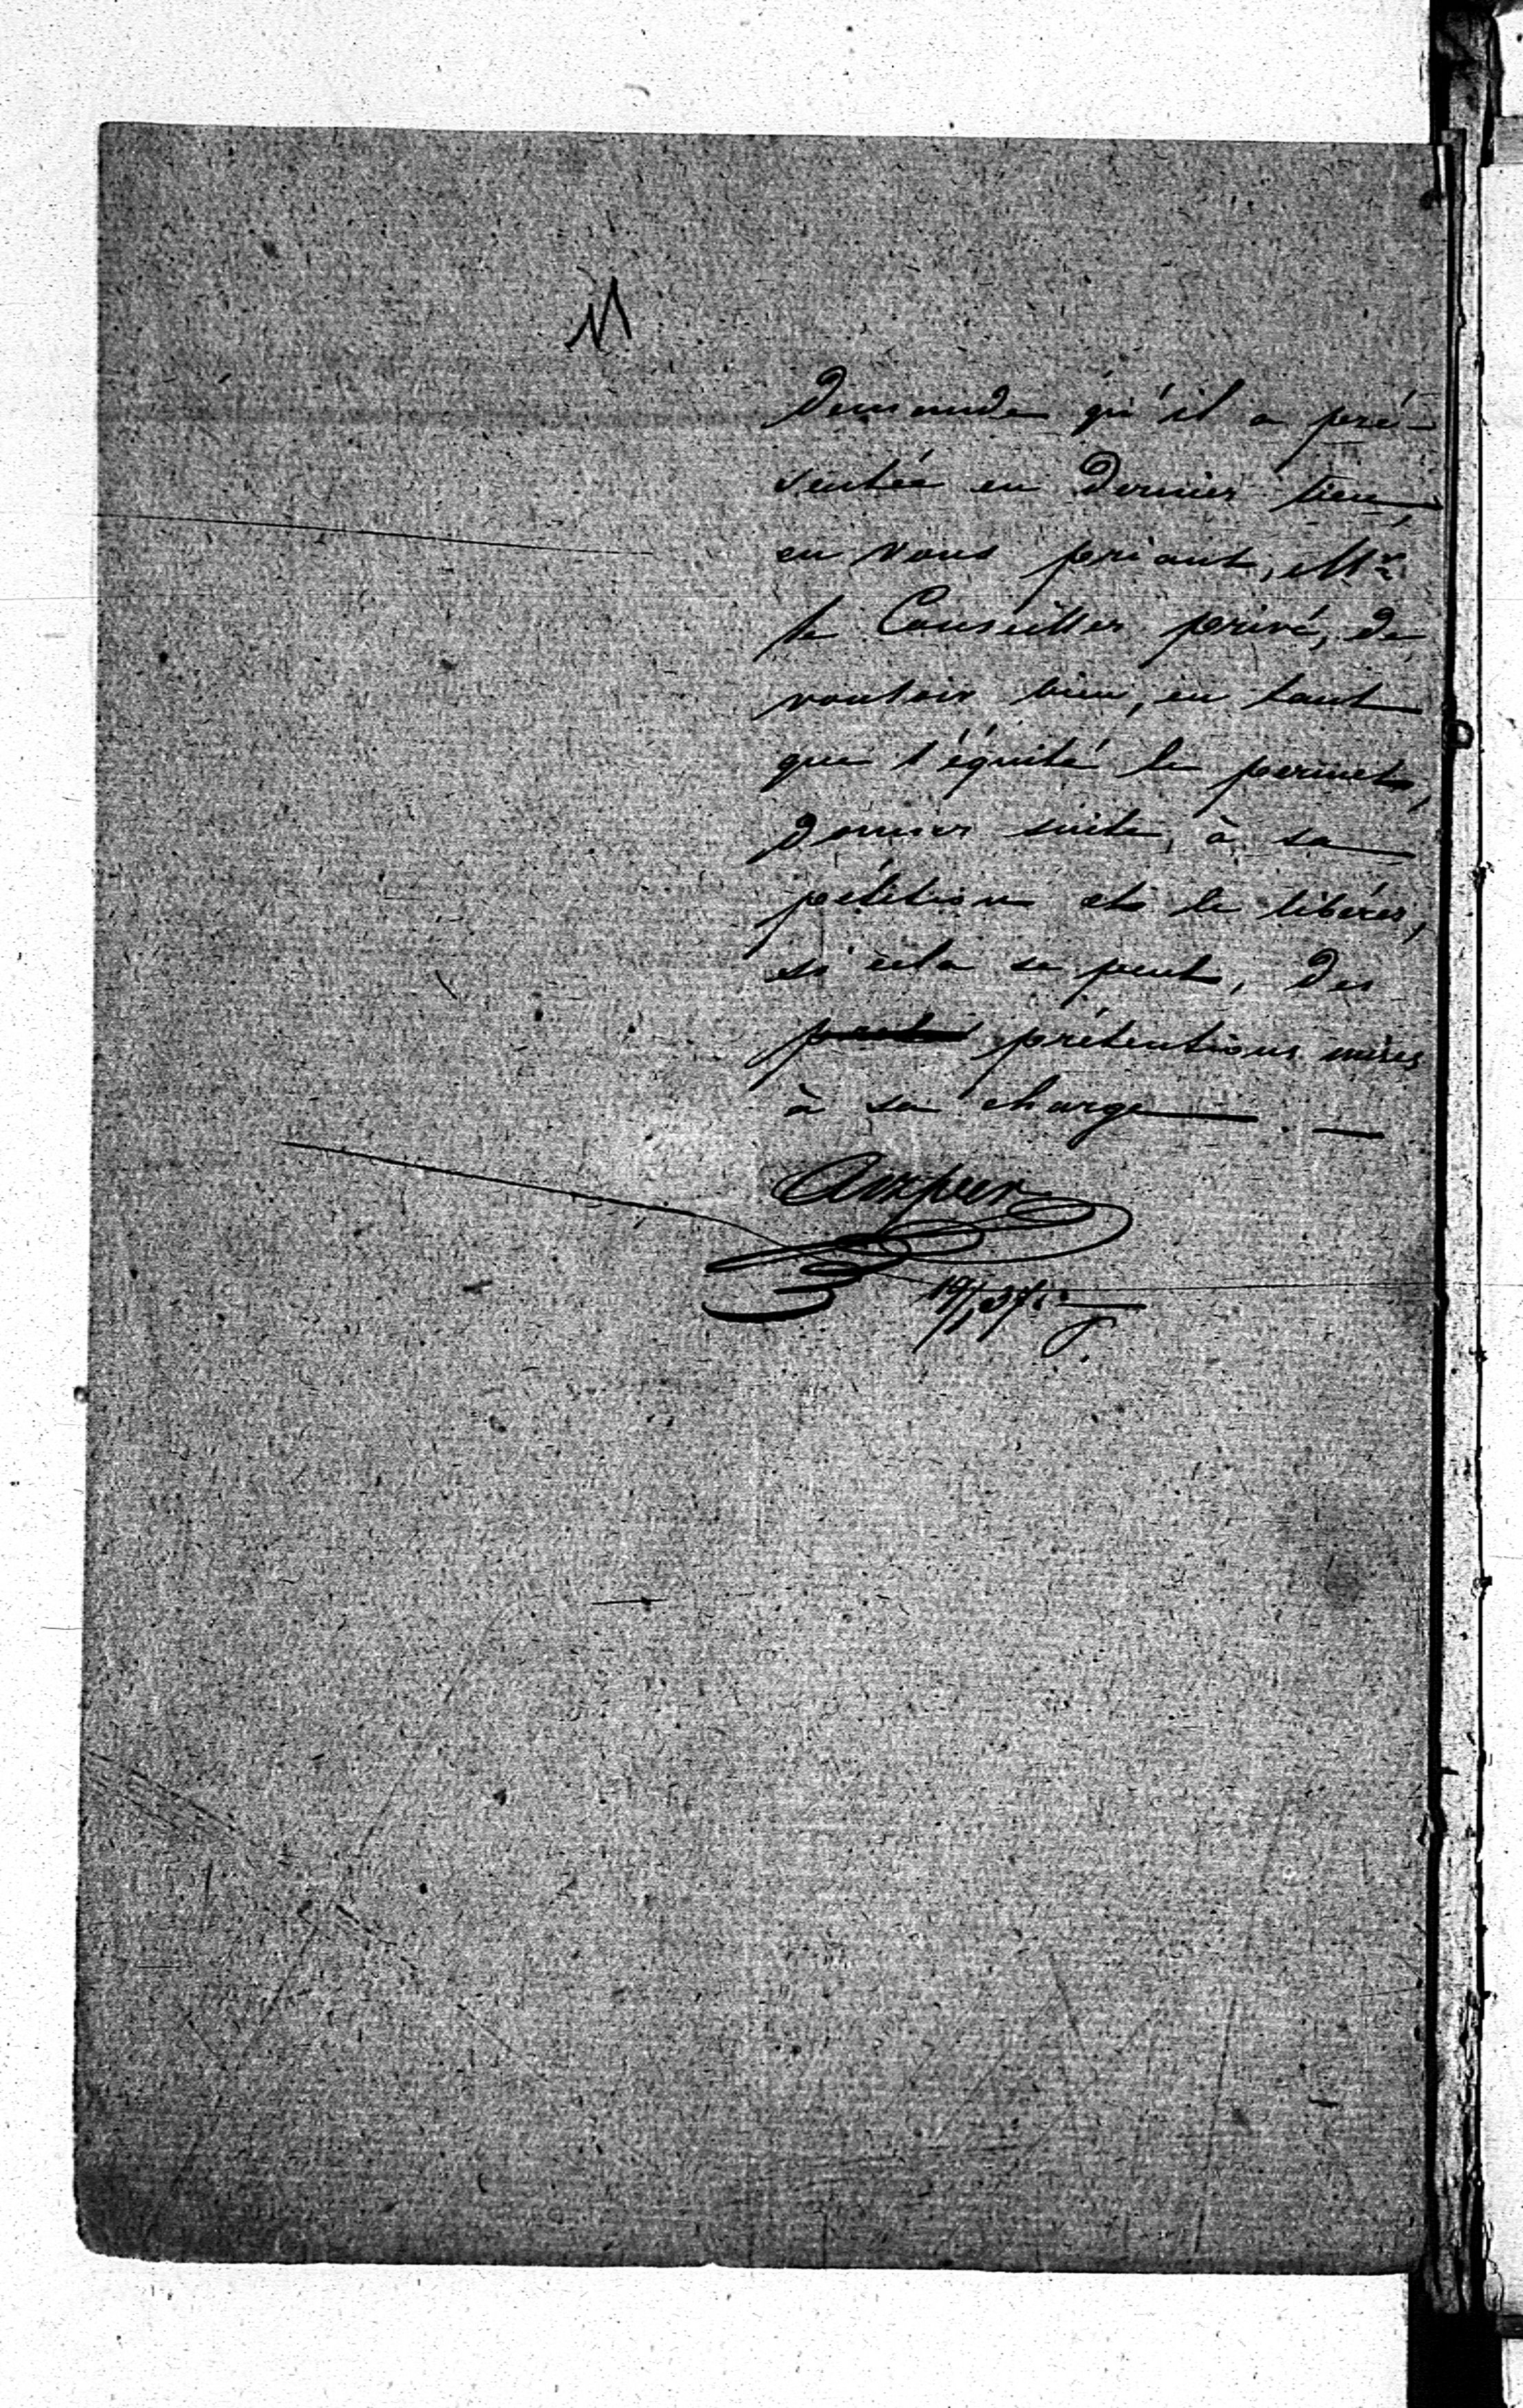 M
demande qu'il a pré-
sentée en dernier lieu,
en vous priant, Mr
le Conseiller privé, de
vouloir bien, en tant
que l'équité le permet,
donner suite, à sa
pétition et le libérer,
si cela se peut, des
prétentions mises
à sa charge. —